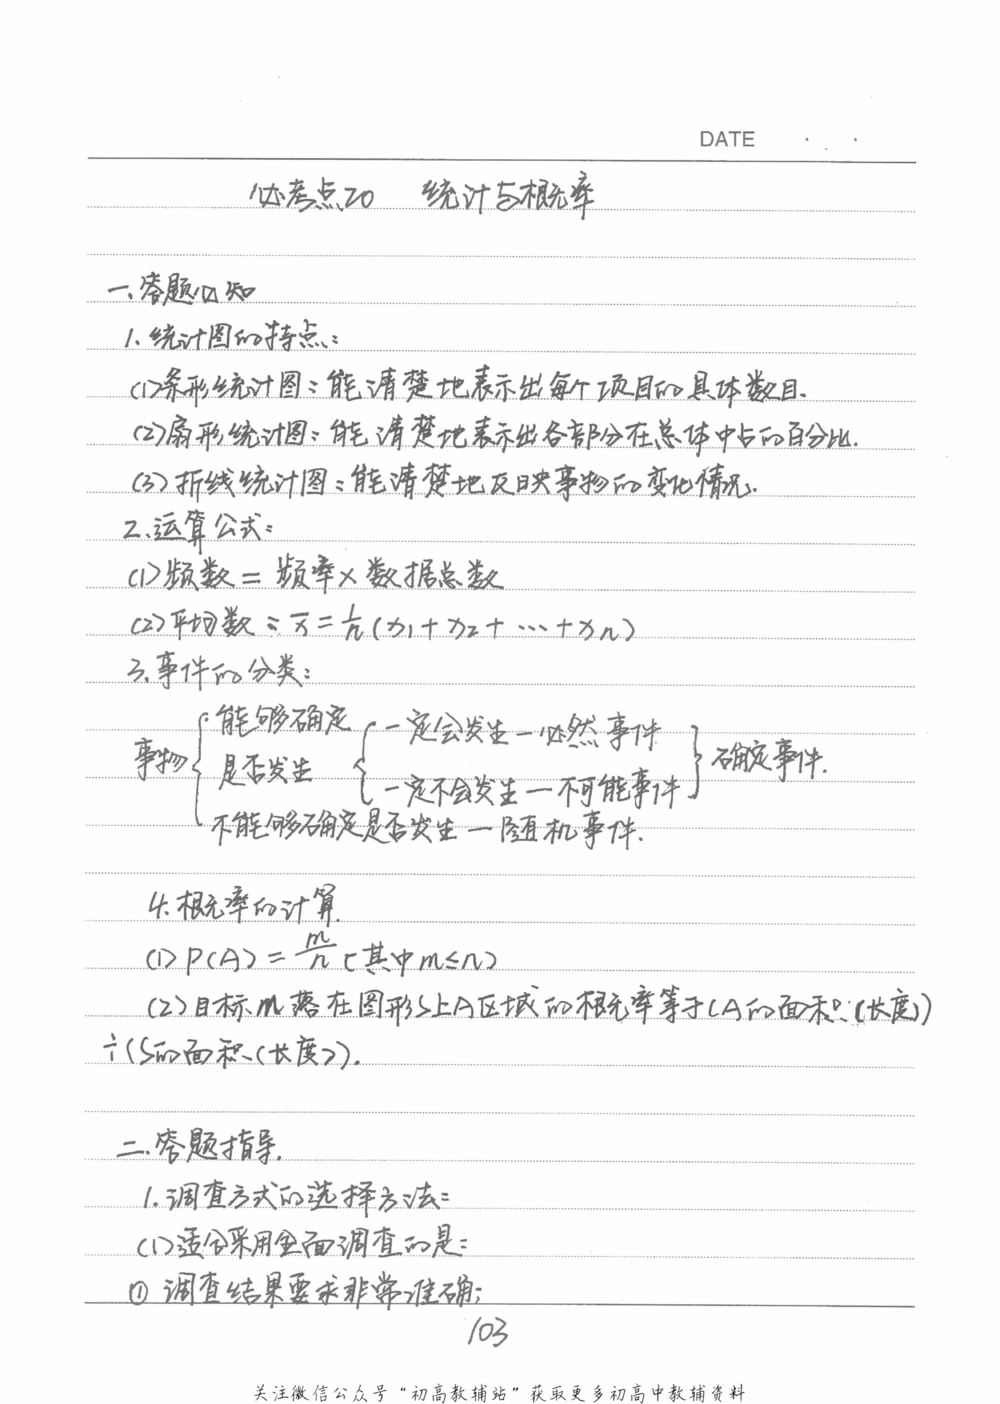 DATE
必考点20 统计与概率
一.答题必知
1.统计图的特点:
(1)条形统计图:能清楚地表示出每个项目的具体数目.
(2)扇形统计图:能清楚地表示出各部分在总体中占的百分比.
(3)折线统计图:能清楚地反映事物的变化情况.
2.运算公式:
(1)频数=频率×数据总数
(2)平均数:x̄=1/n(x1+x2+…+xn)
3.事件的分类:
能够确定 一定会发生—必然事件
事物 是否发生 确定事件.
一定不会发生—不可能事件
不能够确定是否发生—随机事件.
4.概率的计算.
(1)P(A)=m/n(其中m≤n)
(2)目标M落在图形S上A区域的概率等于(A的面积(长度))
÷(S的面积(长度)).
二.答题指导.
1.调查方式的选择方法:
(1)适合采用全面调查的是:
①调查结果要求非常准确;
103
关注微信公众号“初高教辅站”获取更多初高中教辅资料